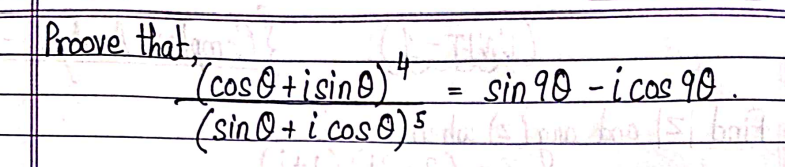 Proove that,
(cosθ + isinθ)^4 / (sinθ + i cosθ)^5 = sin9θ - i cos9θ.